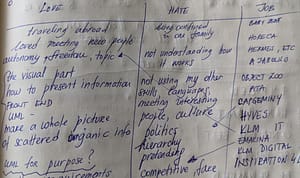 LOVE HATE JOB
traveling abroad being confined BABY
Loved meeting new people to own family HORECA
autonomy freedom, topic not understanding how HERMES, ETC
the visual part it works
how to present information not using my other OBJECT ZOO
FRONT END skills, languages, PITA
UML - meeting interesting CAPGEMINY
make a whole picture people, culture HIVES
of scattered organic info politics KLM IT
hierarchy EMALINA
UML for purpose? pretending KLM DIGITAL
requirements competitive face INSPIRATION